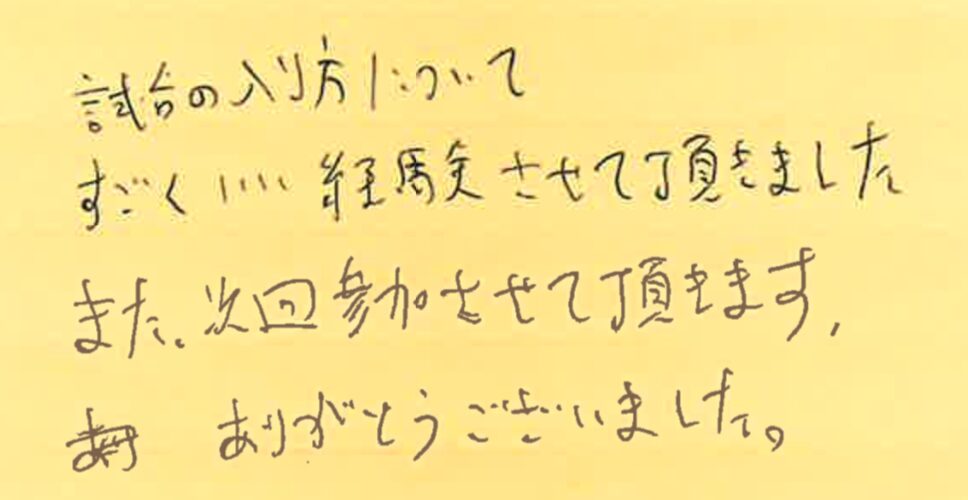 試合の入り方について
すごくいい経験させて頂きました
また、次回参加させて頂きます、
ありがとうございました。